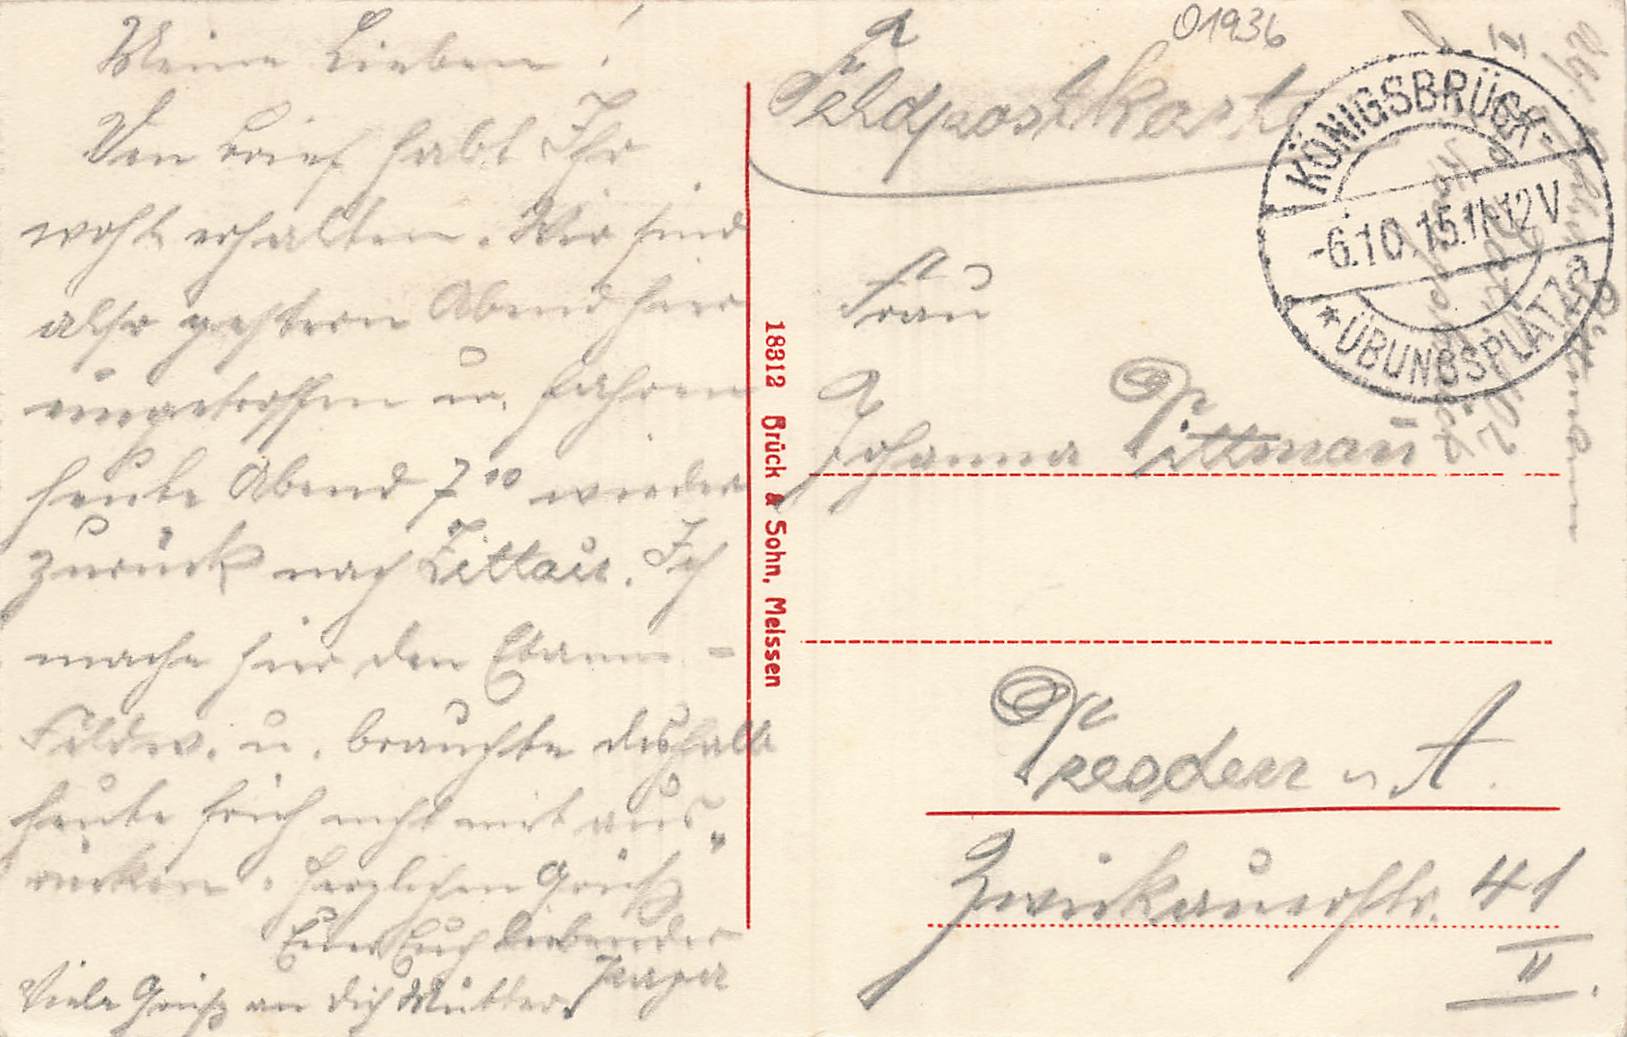 Meine Lieben!
Den Brief habt Ihr
wohl erhalten. Wir sind
also gestern Abend hier
eingetroffen u. fahren
heute Abend 7¹⁰ wieder
zurück nach Zittau. Ich
mache hier den
Feldw. u. brauchte deshalb
heute früh nicht mit aus„
rücken. Herzlichen Gruß
Euer Euch liebender
Papa
Viele Grüße an dich Mutter.
18312 Brück & Sohn, Meissen
01936
Feldpostkarte
KÖNIGSBRÜCK-
-6.10.15.11-12V
* ÜBUNGSPLATZ
Frau
Johanna Dittmann
Dresden - A.
Zwickauerstr. 41
II.